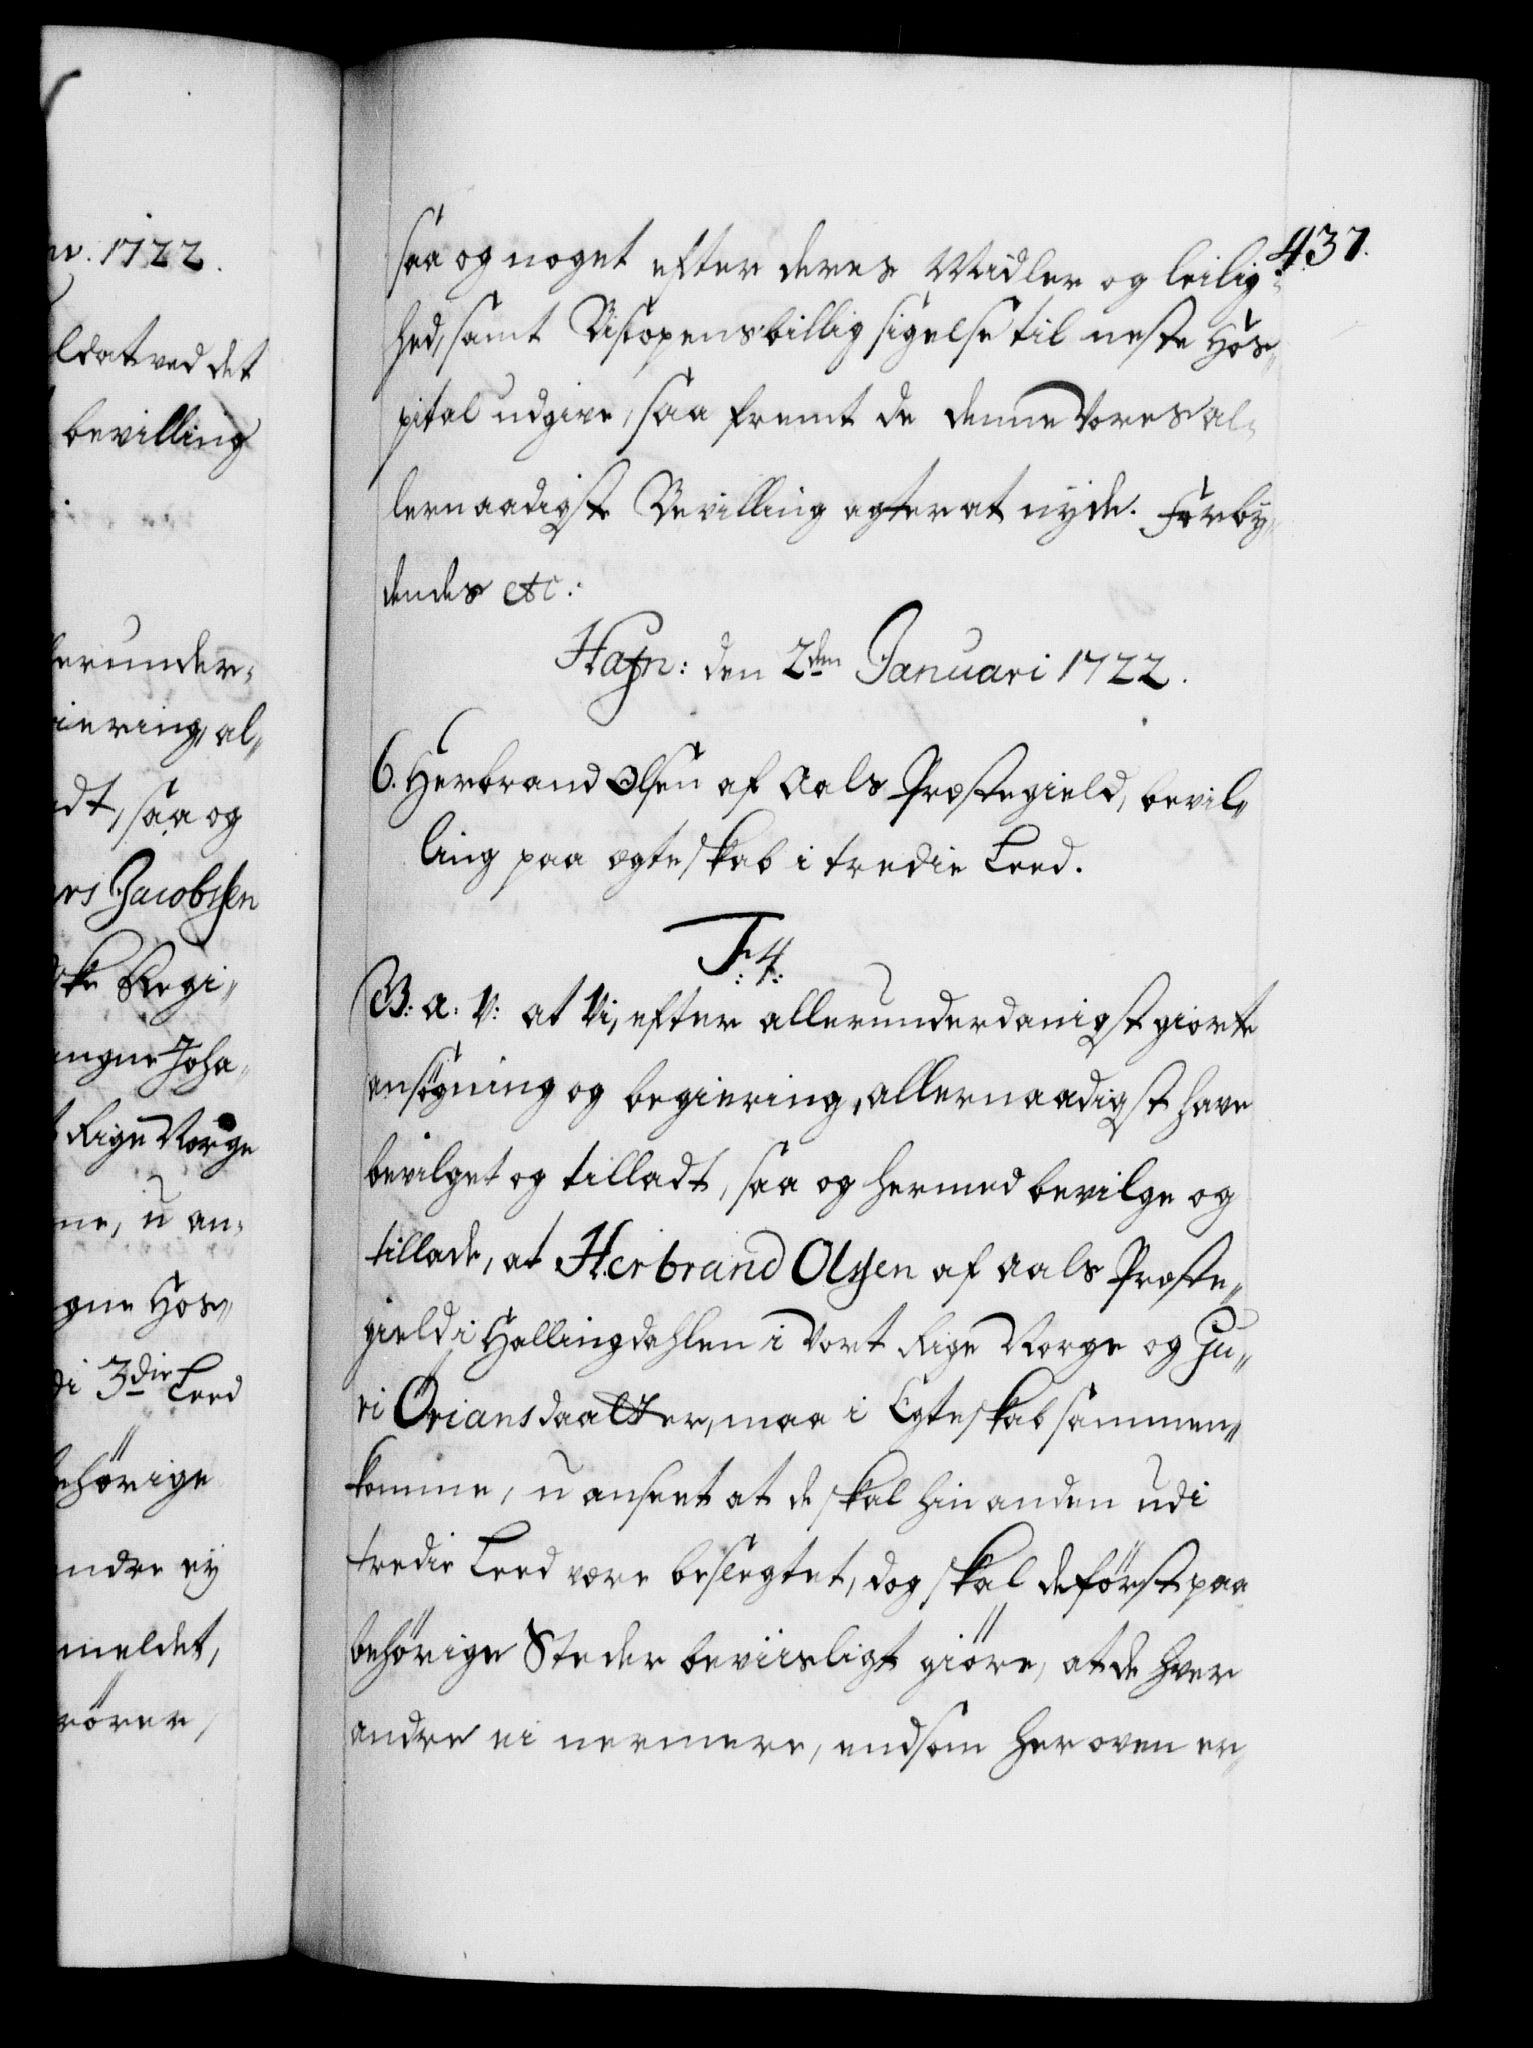 w. 1722.
ldat ved det
bevilling
erunder-
iering, al„
dt, saa og
ers Jacobsen
ske Regi„
ungne Joha„
t Rige Norge
ne, u an-
gne Hos„
di 3die Leed
ehörige
ndre ey
meldet,
rörer,
437.
saa og noget efter deres Midler og leilig-
hed, samt Biscopens billig sigelse til neste Hos„
pital udgive, saa fremt de denne Vores al-
lernaadigste Bevilling agter at nyde. Forby„
dendes etc:
Hafn: den 2den Januari 1722.
6. Herbrand Olsen af Aals Præstegield, bevil„
ling paa ægteskab i tredie Leed.
F:4:
G: a: V: at Vi, efter allerunderdanigst giorte
ansögning og begiering, allernaadigst have
bevilget og tilladt, saa og hermed bevilge og
tillade, at Herbrand Olsen af Aals Præste„
gield i Hallingdahlen i Vort Rige Norge og Gu„
ri Oriansdaatter, maa i Egteskab sammen„
komme, u anseet at de skal hin anden udi
tredie Leed være beslegtet, dog skal de först paa
behörige Steder beviisligt giöre, at de hver
andre ei nermere, end som her oven er„